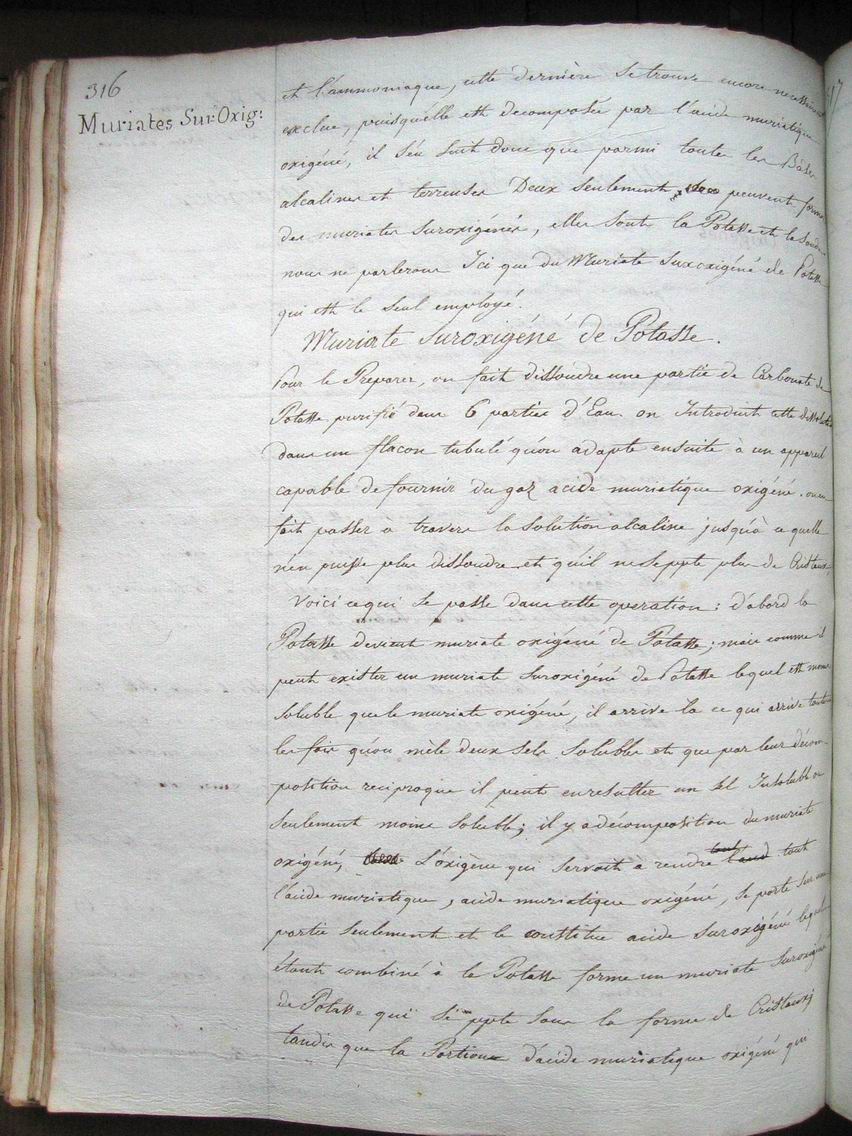 316
Muriates Sur-Oxig:
et l'ammoniaque, cette dernière se trouve encore necessairement
exclue, puisqu'elle est decomposée par l'acide muriatique
oxigéné, il s'en suit donc que parmi toute les Bâses
alcalines et terreuses Deux seulement peuvent former
des muriates suroxigénés, elles sont la Potasse et la Soude
nous ne parlerons Ici que du Muriate suroxigéné de Potasse
qui est le seul employé.
Muriate Suroxigéné de Potasse.
Pour le Preparer, on fait dissoudre une partie de Carbonate de
Potasse purifié dans 6 parties d'Eau. on Introduit cette dissolution
dans un flacon tubulé qu'on adapte ensuite à un appareil
capable de fournir du gaz acide muriatique oxigéné. on en
fait passer à travers la solution alcaline jusqu'à ce quelle
n'en puisse plus dissoudre et qu'il ne se ppte plus de Cristaux,
Voici ce qui se passe dans cette operation: d'abord la
Potasse devient muriate oxigéné de Potasse; mais comme il
peut exister un muriate suroxigéné de Potasse lequel est moins
soluble que le muriate oxigéné, il arrive la ce qui arrive toutes
les fois qu'on mèle deux sels solubles et que par leur décom-
position reciproque il peut en resulter un sel Insoluble ou
seulement moins soluble; il y a décomposition du muriate
oxigéné, L'oxigène qui servoit à rendre tout
l'acide muriatique, acide muriatique oxigéné, se porte sur une
partie seulement et le constitue acide suroxigéné lequel
étant combiné à la Potasse forme un muriate Suroxigéné
de Potasse qui se ppte sous la forme de Cristaux;
tandis que la Portion d'acide muriatique oxigéné qui